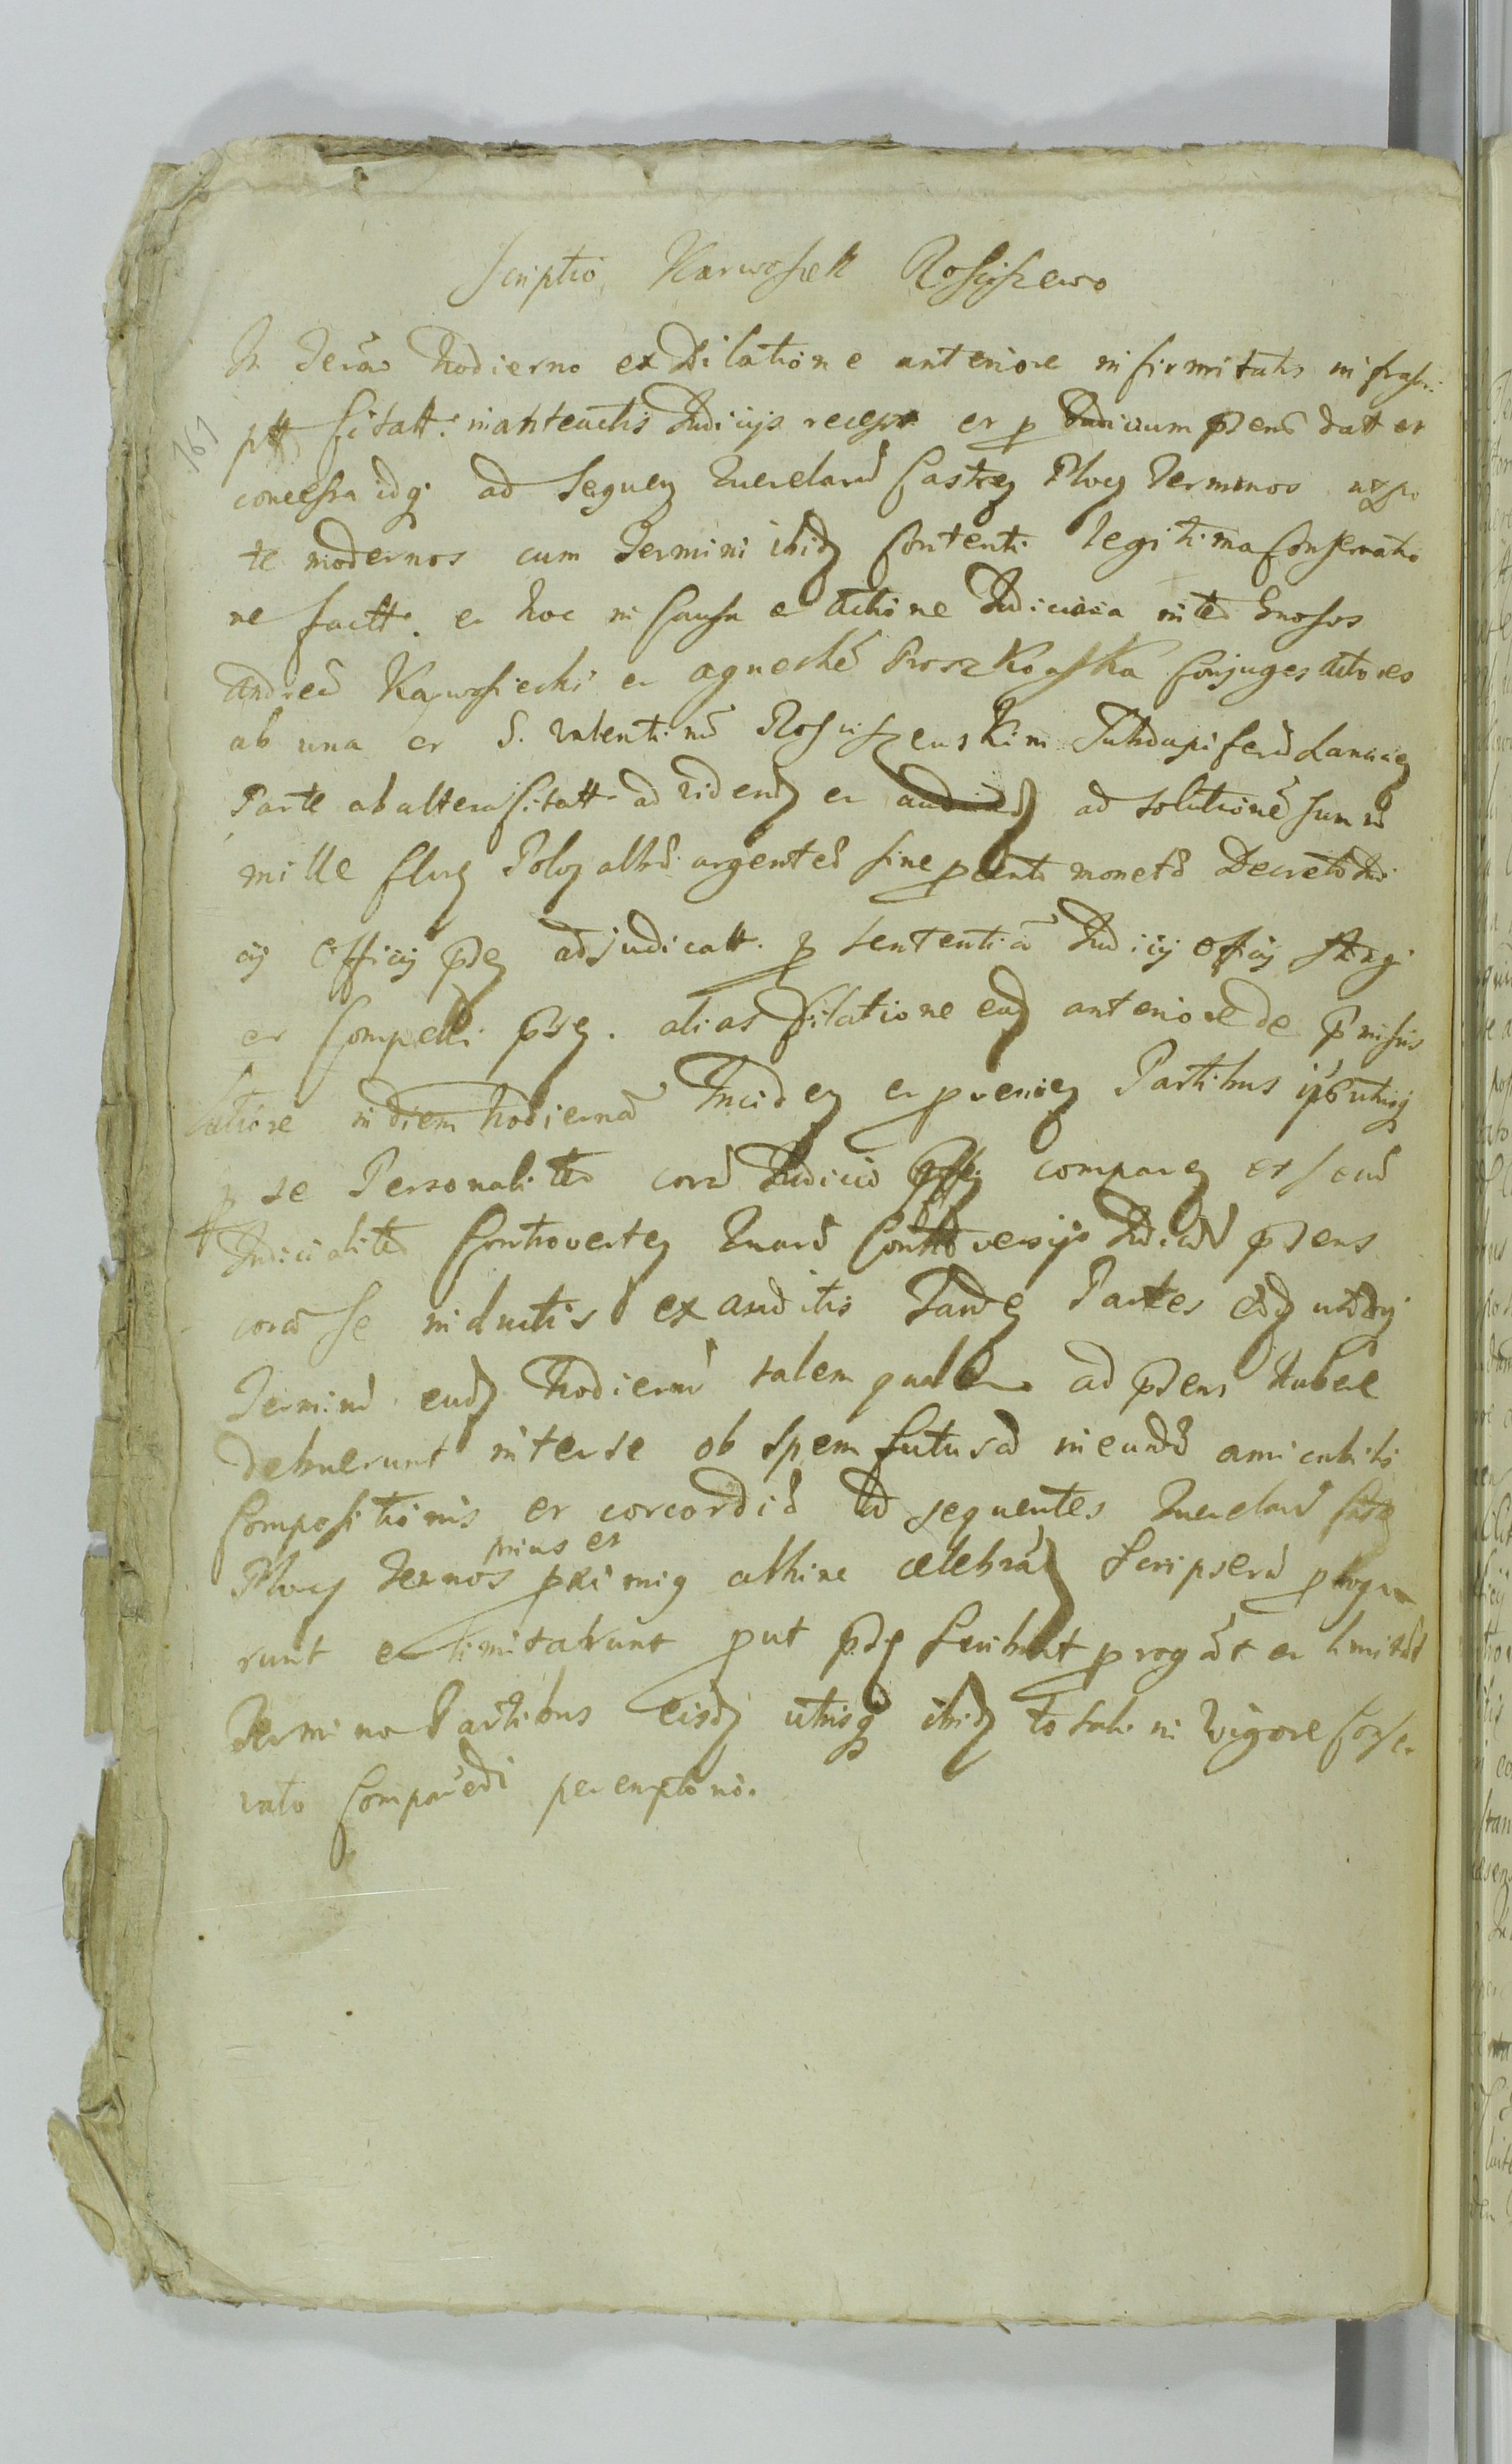 Scriptio Karwosieck Rosciszewo
In Termo hodierno ex Dilatione anteriore infirmitatis infrascri
ptt Citatt. in anteactis Judicijs recept et p Judicium psens datt et
concessa idq ad Sequen Querelaru Castren Plocen Terminos utpo
te modernos cum Termini ibid Contenti legitima Conservatio
ne factt. et hoc in Causa et Actione Judiciaria inter Gnosos
Andrea Karwosiecki et Agneshe Proszkowska Conjuges Actores
ab una et G. Valentinu Rosciszewskim Subdapiferu Lancicien
Parte ab altera Citatt. ad vidend et audiend ad solutione summa
mille flor Polon albae argenteae sine pcenti moneta Decreto Judi
cij Officij psen adjudicatt. p sententia Judicij Officij String
et Compelli psen. alias Citatione ead anteriore de pmissis
latiore in diem hodierna Inciden et pvenien Partibus ijs utrisq
p se Personaliter cora Judicio psen comparen et seud
Judicialiter Controverten Quaru Controversijs Judiciu psens
cora se inductis et exauditis Tande Partes eaed utraeq
Terminu eund hodiernu talem qualem ad psens habere
debuerunt inter se ob spem futura ineunda amicabilis
Compositionis et concordia ad sequentes Querelaru Castren
Plocen Termos prius et primig abhinc celebrand Scripseru proga
runt et limitarunt prout psen Scribunt progant et limitat
Termino Partibus eisd utrisq ibid totali in vigore Conser
vato Comparedi peremptorio.
161